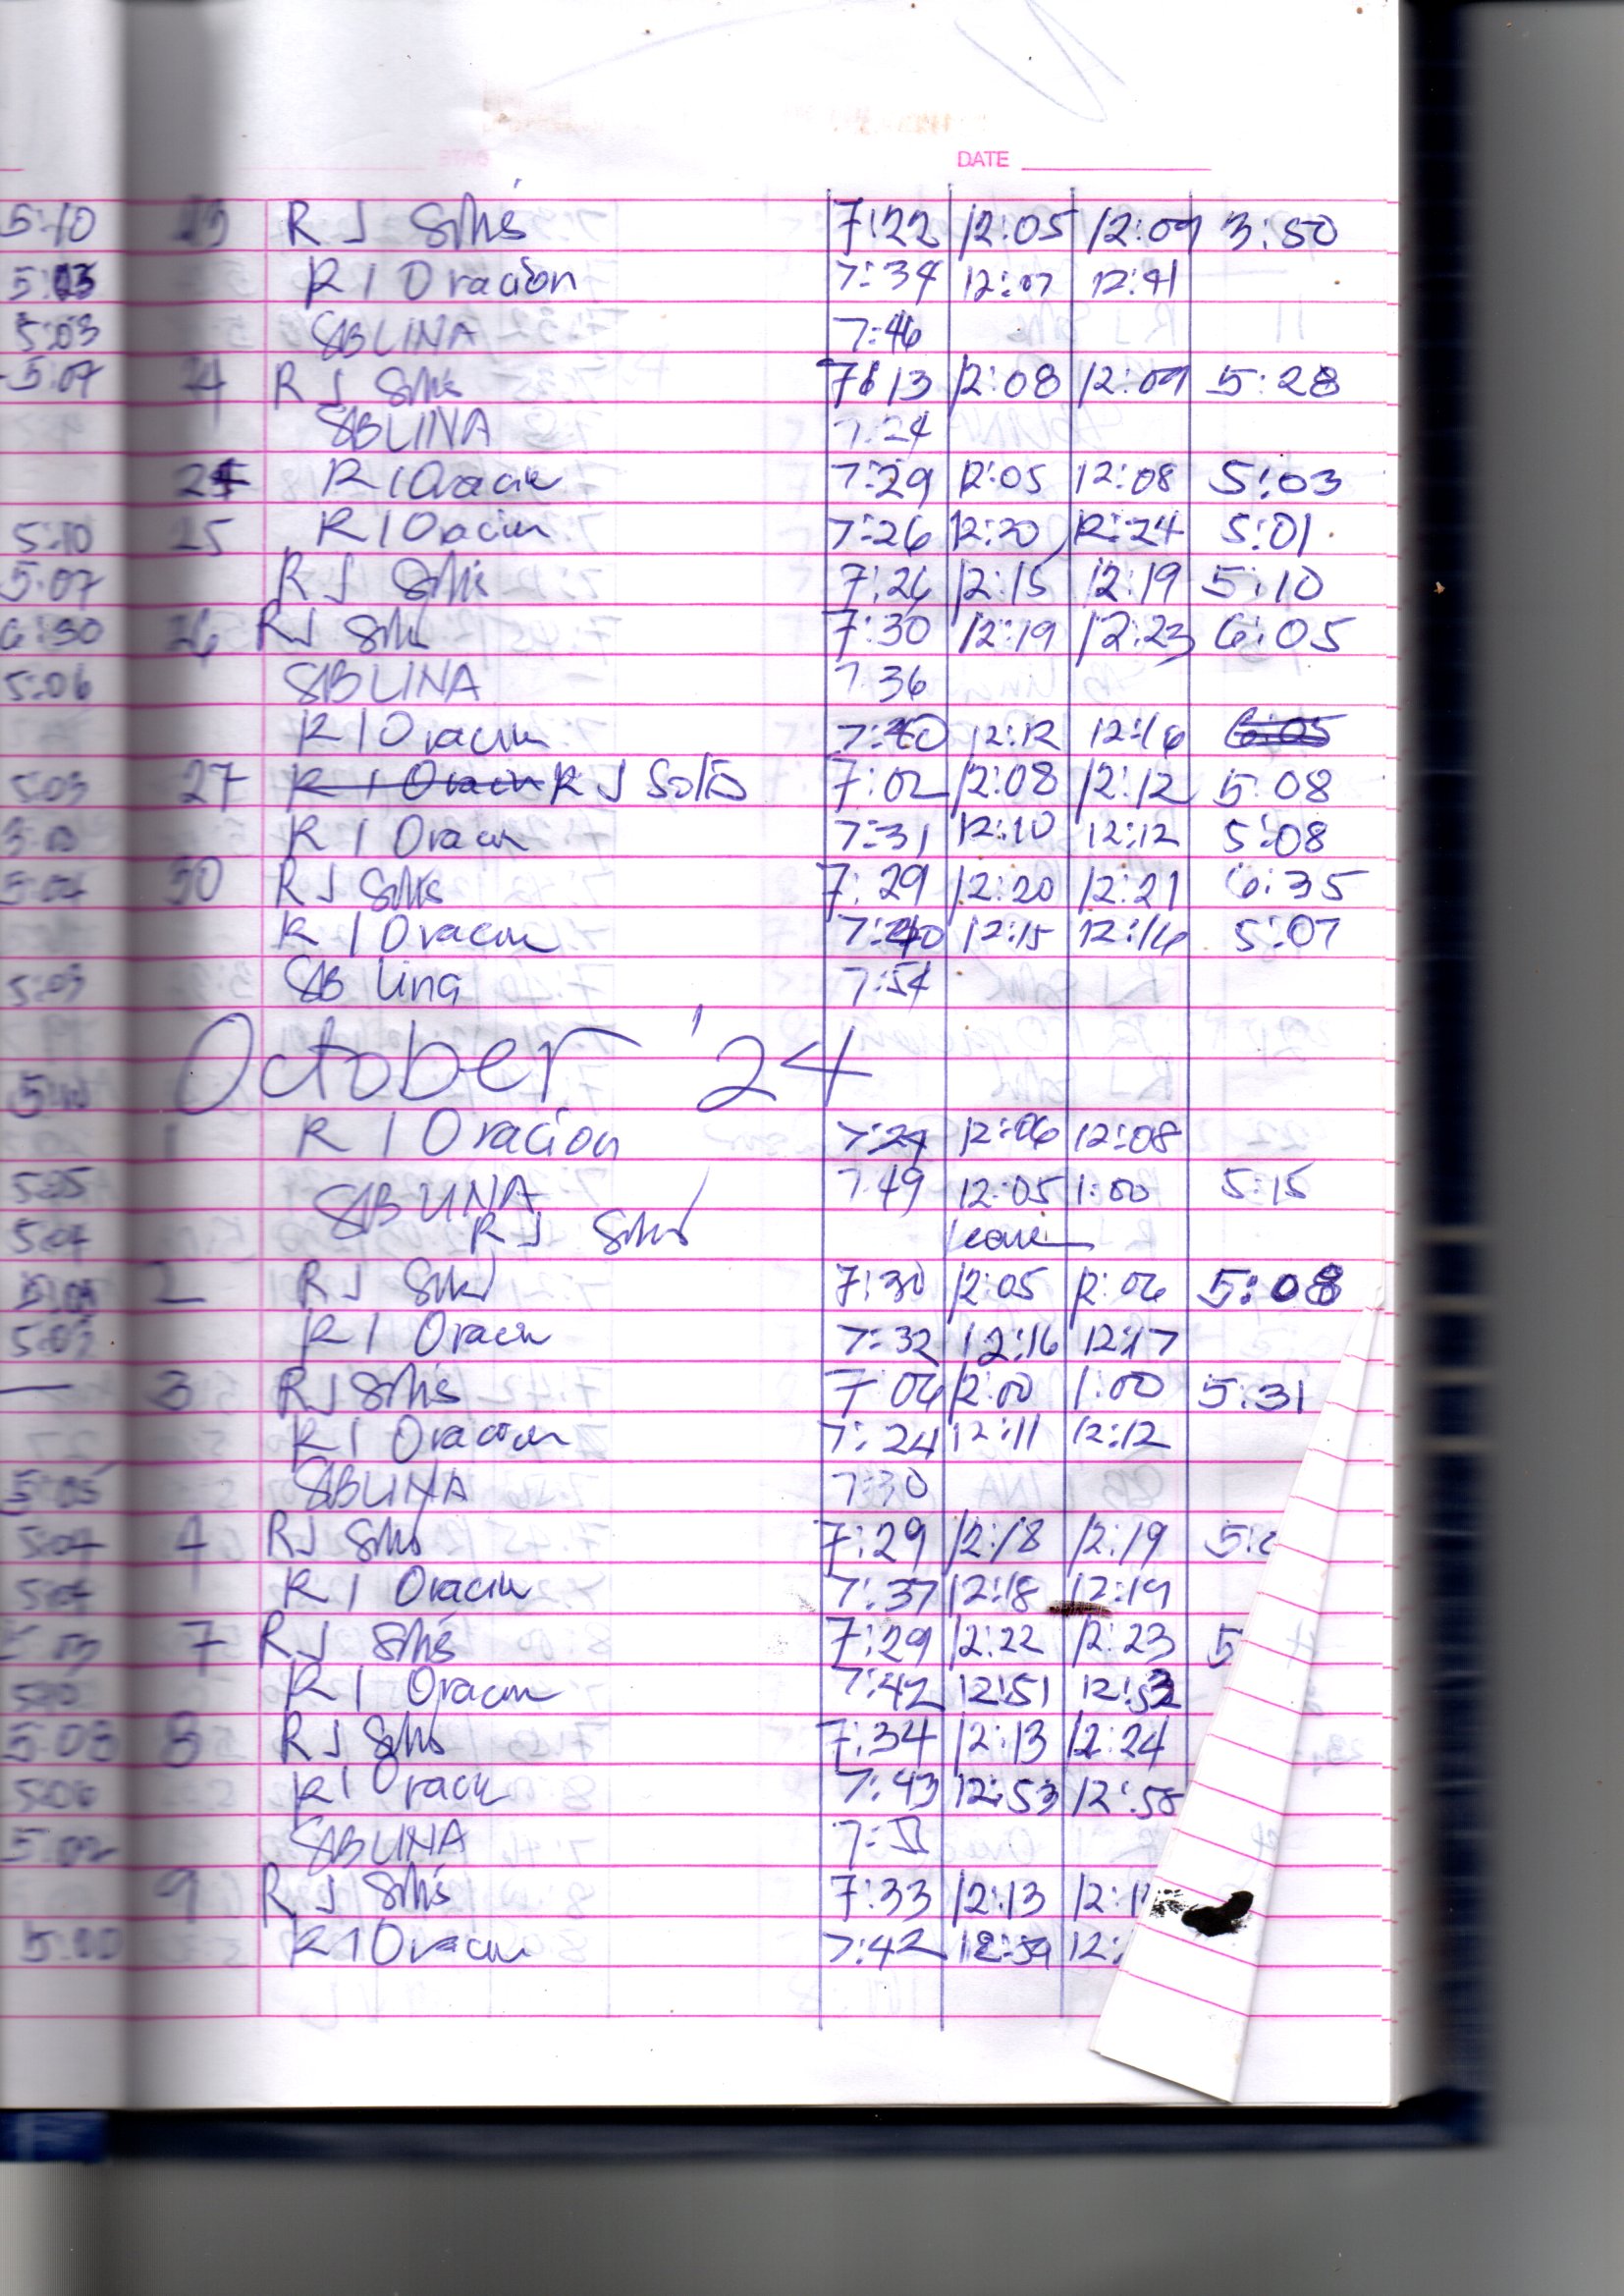 DATE
5:10 23 R J Solis 7:22 12:05 12:09 3:50
5:03 R I Oracion 7:34 12:07 12:41
5:03 SB LINA 7:46
5:07 24 R J Solis 7:13 12:08 12:09 5:28
SB LINA 7:24
24 R I Oracion 7:29 12:05 12:08 5:03
5:10 25 R I Oracion 7:26 12:20 12:24 5:01
5:07 R J Solis 7:26 12:15 12:19 5:10
6:30 26 RJ Solis 7:30 12:19 12:23 6:05
5:06 SB LINA 7:36
R I Oracion 7:40 12:12 12:16 6:05
5:03 27 R I Oracion R J Solis 7:02 12:08 12:12 5:08
R I Oracion 7:31 12:10 12:12 5:08
30 RJ Solis 7:29 12:20 12:21 6:35
R I Oracion 7:40 12:15 12:16 5:07
5:03 SB Lina 7:54
October '24
1 R I Oracion 12:06 12:08
SB LINA 7:49 12:05 1:00 5:15
R J Solis leave
2 R J Solis 7:30 12:05 12:06 5:08
5:03 R I Oracion 7:32 12:16 12:17
— 3 RJ Solis 7:06 12:00 1:00 5:31
R I Oracion 7:24 12:11 12:12
5:05 SB LINA 7:30
4 RJ Solis 7:29 12:18 12:19
R I Oracion 7:37 12:18 12:19
7 RJ Solis 7:29 12:22 12:23 5
R I Oracion 7:42 12:51
5:08 8 R J Solis 7:34 12:13 12:24
5:06 R I Oracion 7:43 12:53 12:58
5:02 SB LINA
9 R J Solis 7:33 12:13
5:00 R I Oracion 7:42 12:59 12: